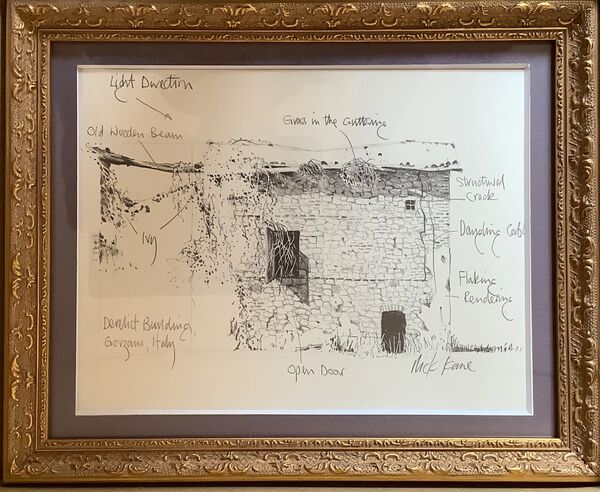 Light Direction
Old Wooden Beam
Grass in the Guttering
Structural
Crack
Ivy
Dangling Cable
Flaking
Rendering
Derelict Building,
Gorzano, Italy
Open Door
Nick Kane